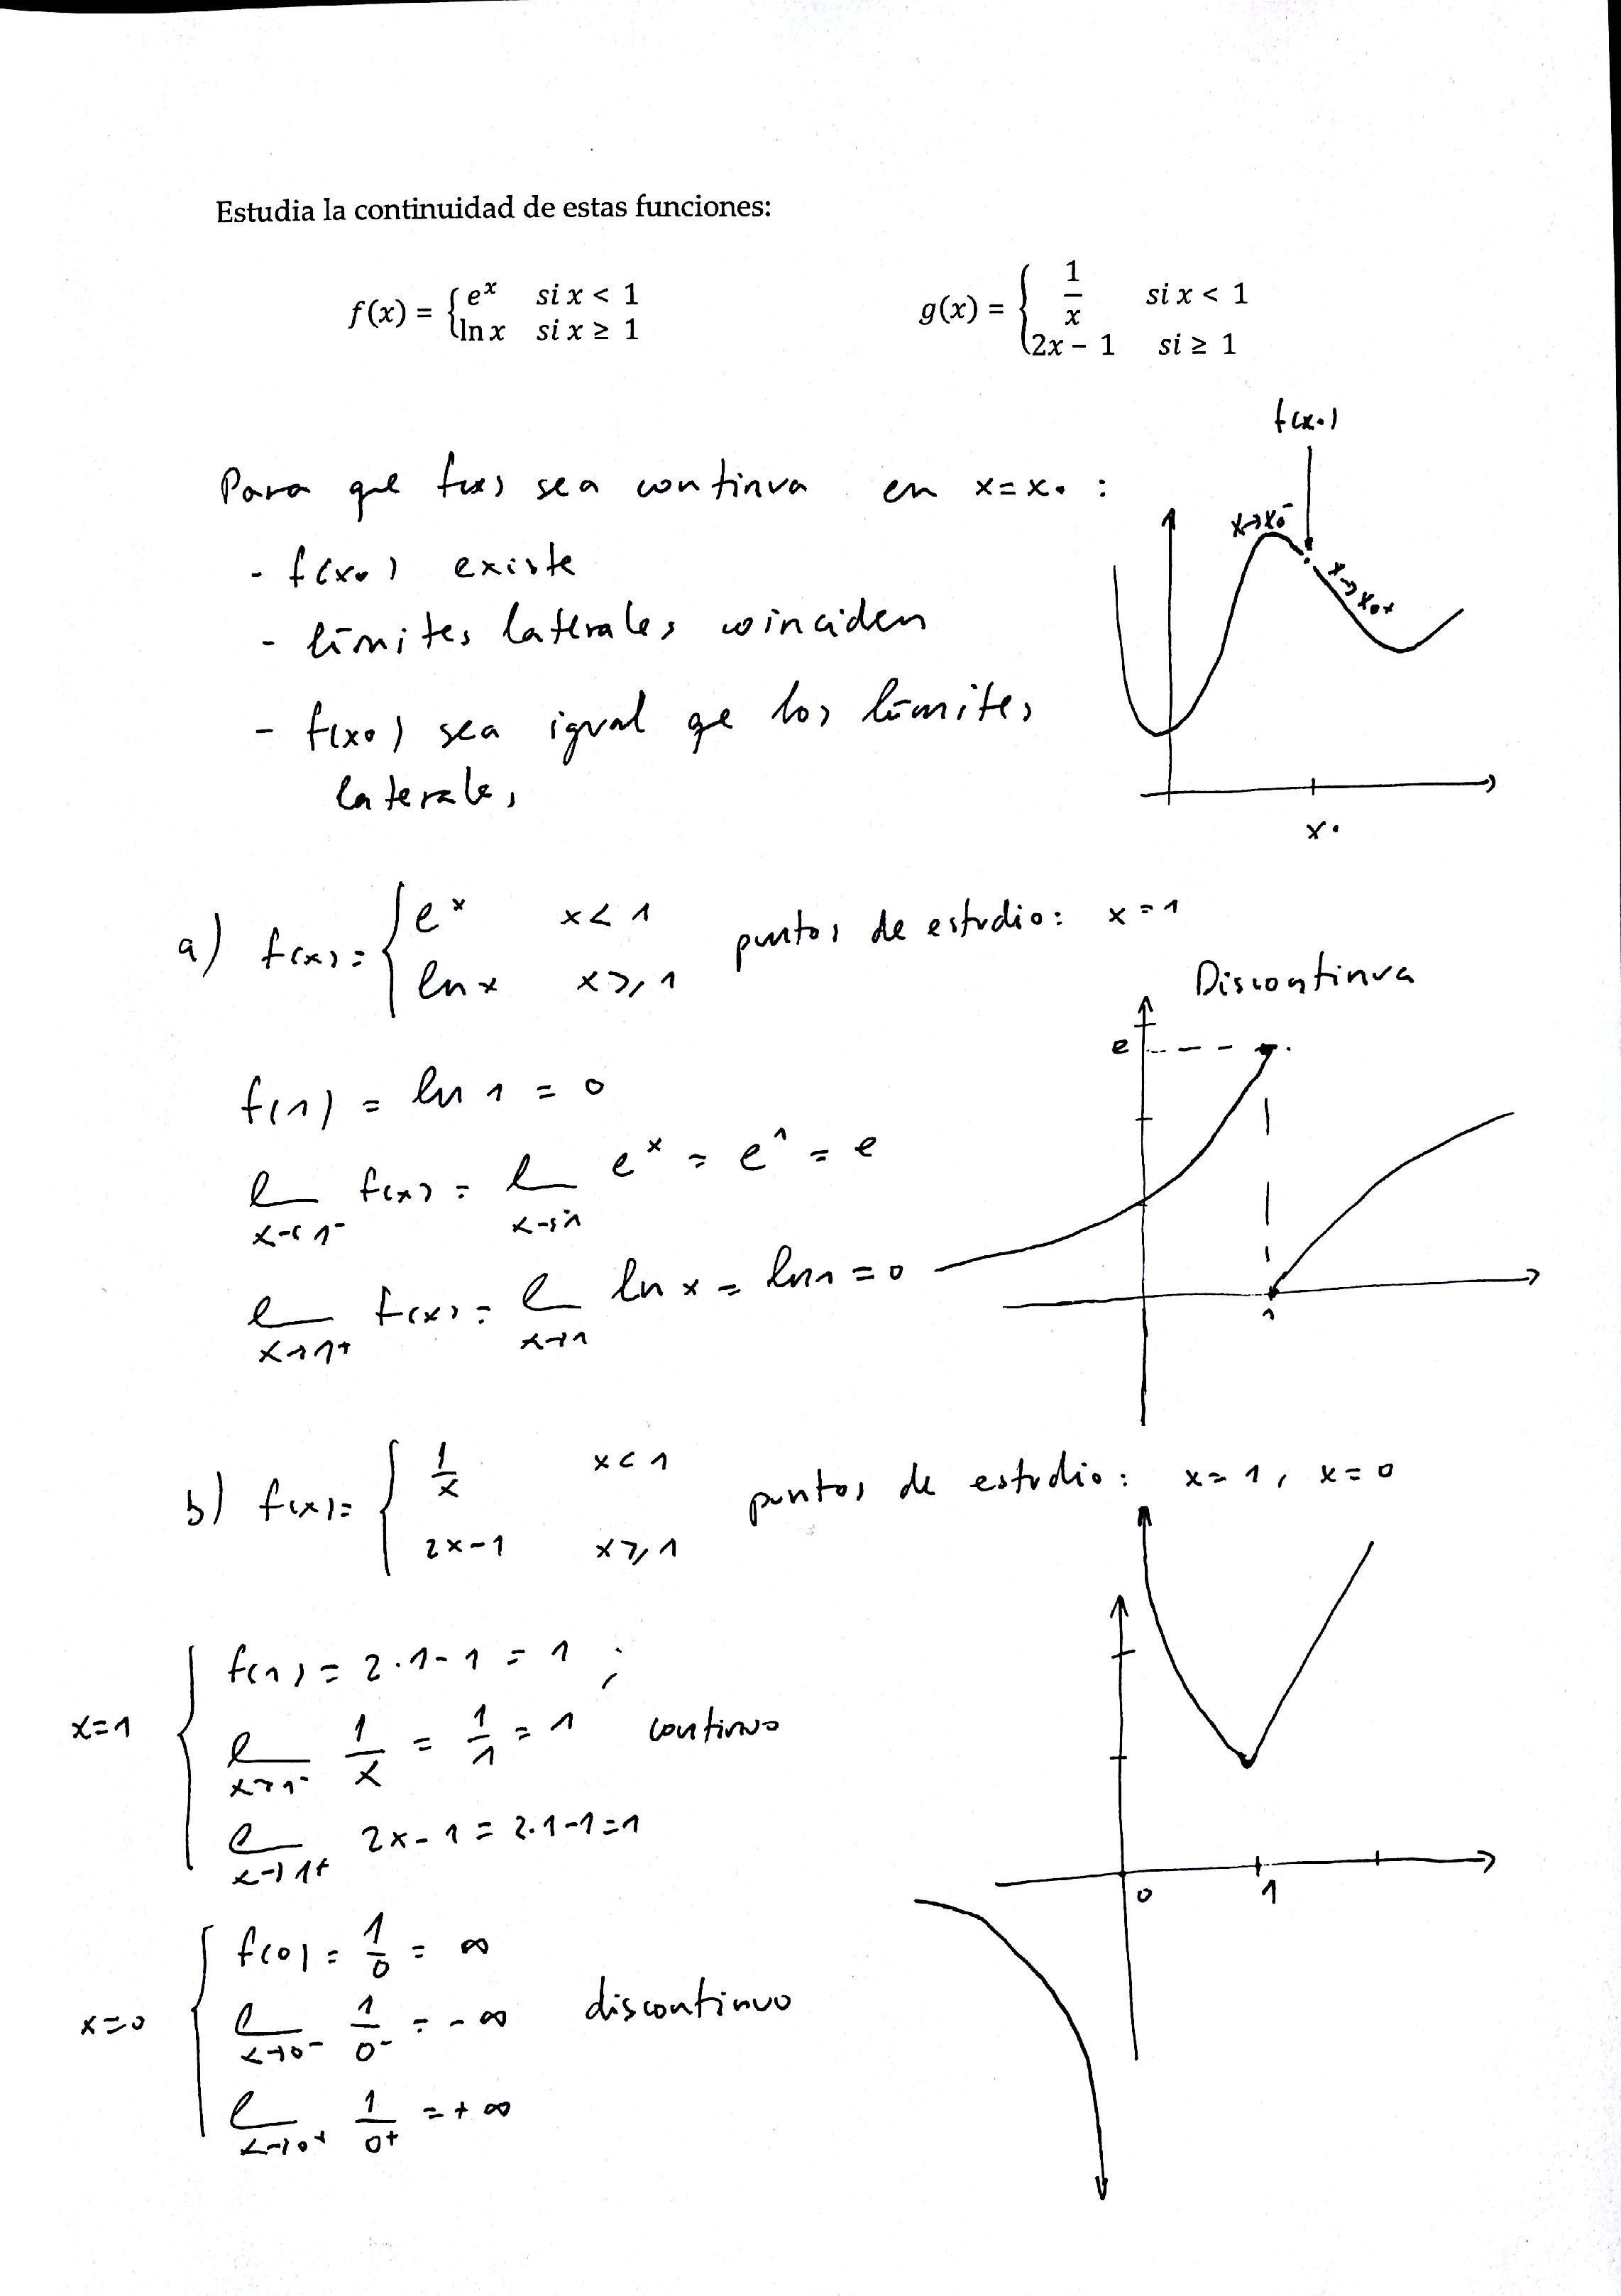 Estudia la continuidad de estas funciones:
f(x) = { e^x si x < 1
ln x si x ≥ 1
g(x) = { 1/x si x < 1
2x − 1 si ≥ 1
f(x₀)
Para que f(x) sea continua en x = x₀ :
- f(x₀) existe
- límites laterales coinciden
- f(x₀) sea igual que los límites
laterales
x→x₀⁻
x→x₀⁺
x₀
a) f(x) = { e^x x < 1
ln x x ≥ 1
puntos de estudio: x = 1
Discontinua
e
1
f(1) = ln 1 = 0
l__ x→1⁻ f(x) = l__ x→1 e^x = e^1 = e
l__ x→1⁺ f(x) = l__ x→1 ln x = ln 1 = 0
b) f(x) = { 1/x x < 1
2x − 1 x ≥ 1
puntos de estudio: x = 1, x = 0
x = 1
f(1) = 2·1 − 1 = 1 ;
l__ x→1⁻ 1/x = 1/1 = 1 continuo
l__ x→1⁺ 2x − 1 = 2·1−1 = 1
0 1
x = 0
f(0) = 1/0 = ∞
l__ x→0⁻ 1/0⁻ = −∞ discontinuo
l__ x→0⁺ 1/0⁺ = +∞